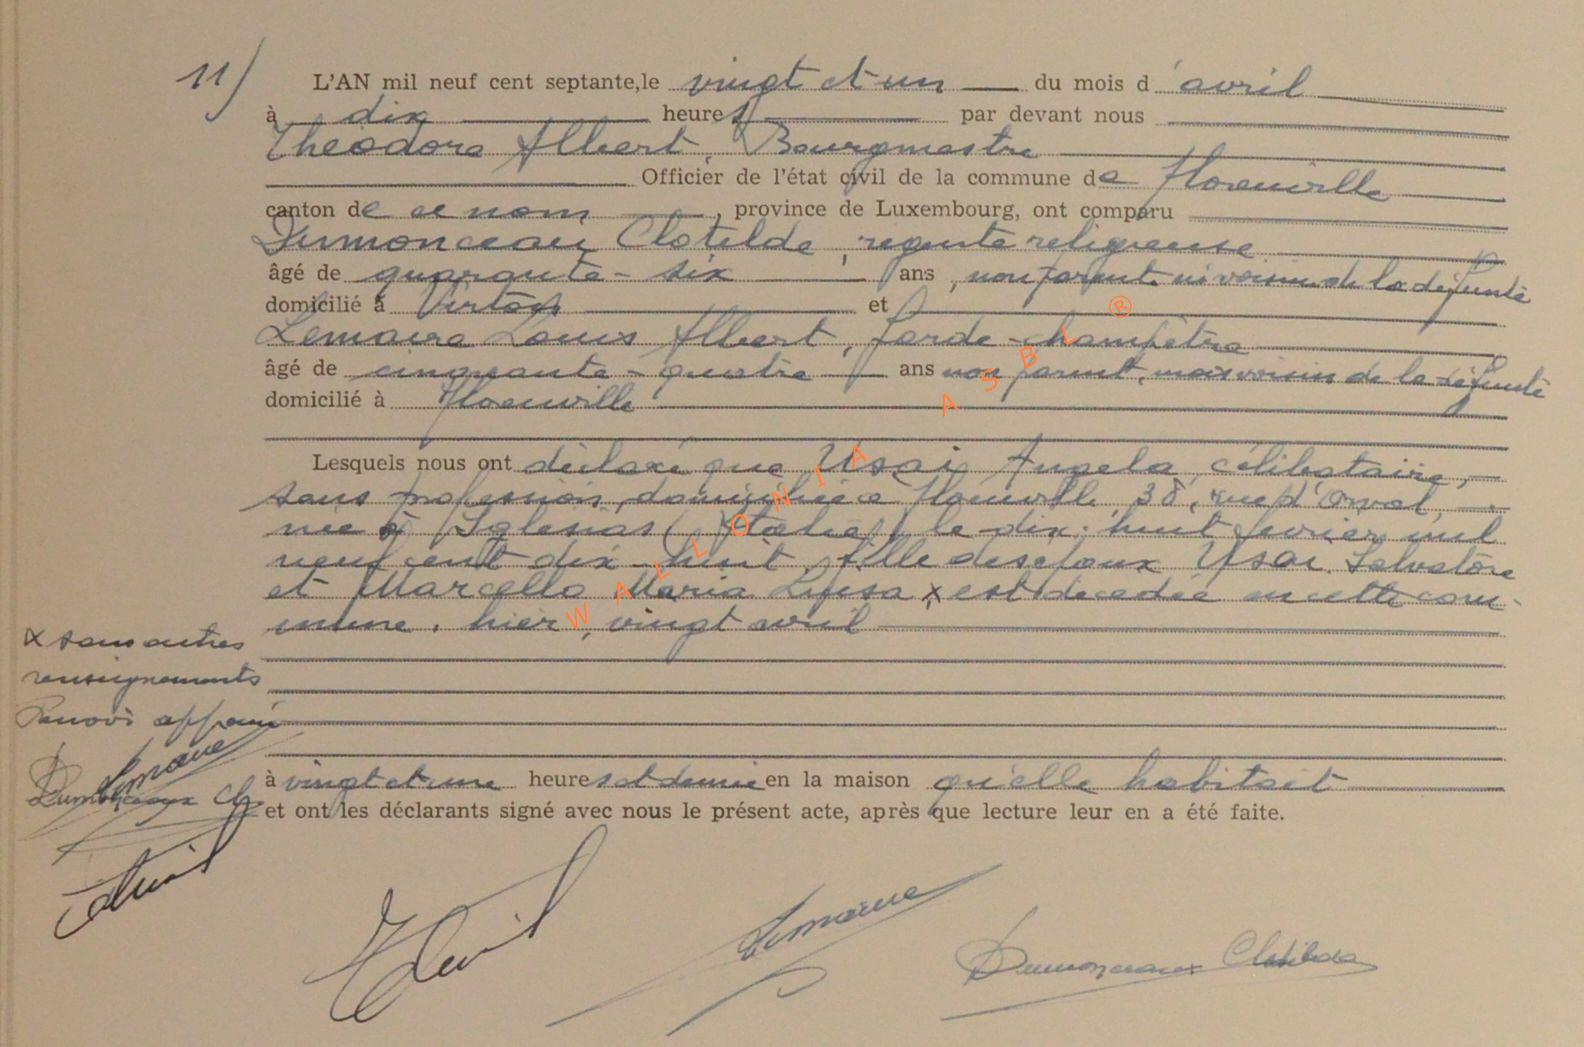 11)
L'AN mil neuf cent septante, le vingt et un du mois d'avril
à dix heures par devant nous
Théodore Albert, Bourgmestre
Officier de l'état civil de la commune de Florenville
canton de ce nom, province de Luxembourg, ont comparu
Dumonceau Clotilde, régente religieuse
âgé de quarante-six ans, non parent ni voisin de la défunte
domicilié à Virton et
Lemaire Louis Albert, Garde-champêtre
âgé de cinquante-quatre ans non parent, mais voisin de la défunte
domicilié à Florenville
Lesquels nous ont déclaré que Usai Angela, célibataire,
sans profession, domiciliée à Florenville, 38, rue d'Orval,
née à Iglesias (Italie) le dix-huit février mil
neuf cent dix-huit, fille des époux Usai Salvatore
et Marcello Maria Luisa x, est décédée en cette com-
mune, hier, vingt avril
x sans autres
renseignements
Renvoi approuvé
Lemaire
Dumonceaux Cl
à vingt et une heures et demie en la maison qu'elle habitait
et ont les déclarants signé avec nous le présent acte, après que lecture leur en a été faite.
Lemaire
Dumonceaux Clotilde
WALLONIA ASBL ®